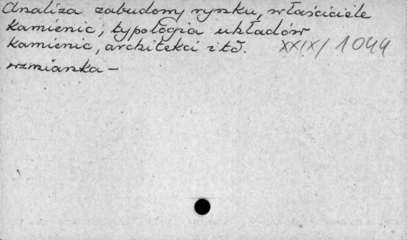 Analiza zabudowy rynku, właściciele
kamienic, typologia układów
kamienic, architekci itd. XXIX/1044
wzmianka –